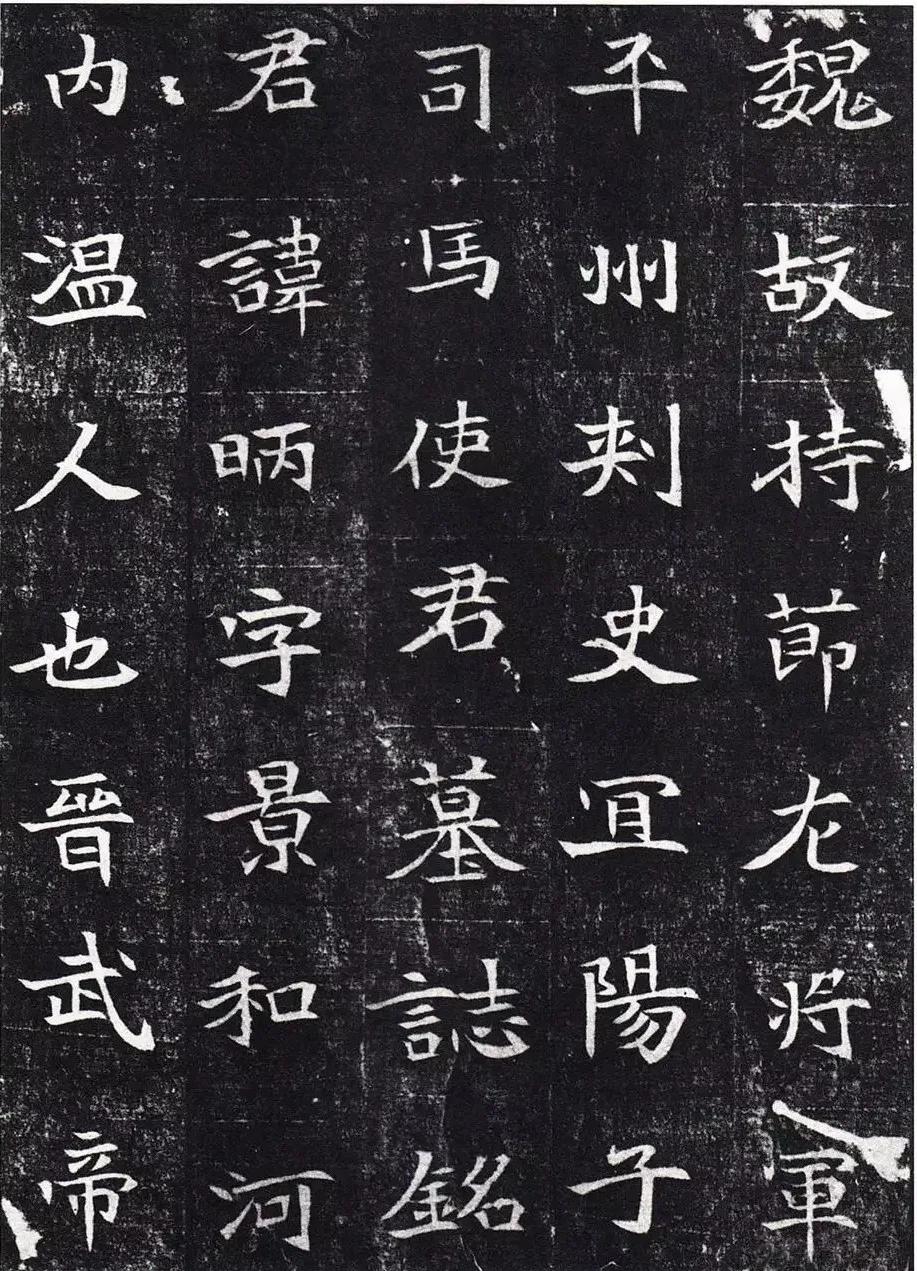 魏故持節左将軍
平州刾史冝陽子
司馬使君墓誌銘
君諱昞字景和河
内温人也晉武帝